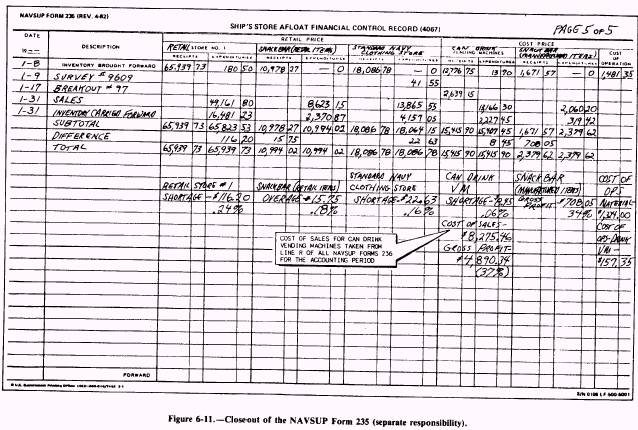 NAVSUP FORM 235 (REV. 4-82)
SHIP'S STORE AFLOAT FINANCIAL CONTROL RECORD (4067)
PAGE 5 OF 5
DATE 19 DESCRIPTION RETAIL PRICE COST PRICE
RETAIL STORE NO. 1 SNACK BAR (RETAIL ITEMS) STANDARD NAVY CLOTHING STORE CAN DRINK VENDING MACHINES SNACK BAR (MANUFACTURED ITEMS) COST OF OPERATION
RECEIPTS EXPENDITURES RECEIPTS EXPENDITURES RECEIPTS EXPENDITURES RECEIPTS EXPENDITURES RECEIPTS EXPENDITURES
1-8 INVENTORY BROUGHT FORWARD 65,939 73 180 50 10,978 27 — 0 18,086 78 — 0 12,776 75 13 90 1,671 57 — 0 1,481 35
1-9 SURVEY # 9609 41 55
1-17 BREAKOUT # 97 2,639 15
1-31 SALES 49,161 80 8,623 15 13,865 55 13,166 30 2,060 20
1-31 INVENTORY CARRIED FORWARD 16,481 23 2,370 87 4,157 05 2,227 45 319 42
SUBTOTAL 65,939 73 65,823 53 10,978 27 10,994 02 18,086 78 18,064 15 15,415 90 15,407 45 1,671 57 2,379 62
DIFFERENCE 116 20 15 75 22 63 8 45 708 05
TOTAL 65,939 73 65,939 73 10,994 02 10,994 02 18,086 78 18,086 78 15,415 90 15,415 90 2,379 62 2,379 62
RETAIL STORE #1 SNACK BAR (RETAIL ITEMS) STANDARD NAVY CLOTHING STORE CAN DRINK VM SNACK BAR (MANUFACTURED ITEMS) COST OF OPS
SHORTAGE-$116.20 OVERAGE-$15.75 SHORTAGE-$22.63 SHORTAGE-$8.45 GROSS PROFIT $708.05 MATERIAL
.24% .18% .16% .06% 34% $1,324.00
COST OF SALES- COST OF
$8,275.46 OPS-DRINK
GROSS PROFIT- VM-
$4,890.34 $157.35
(37%)
COST OF SALES FOR CAN DRINK
VENDING MACHINES TAKEN FROM
LINE R OF ALL NAVSUP FORMS 236
FOR THE ACCOUNTING PERIOD
FORWARD
S/N 0108 LF 500 5001
Figure 6-11.—Close-out of the NAVSUP Form 235 (separate responsibility).